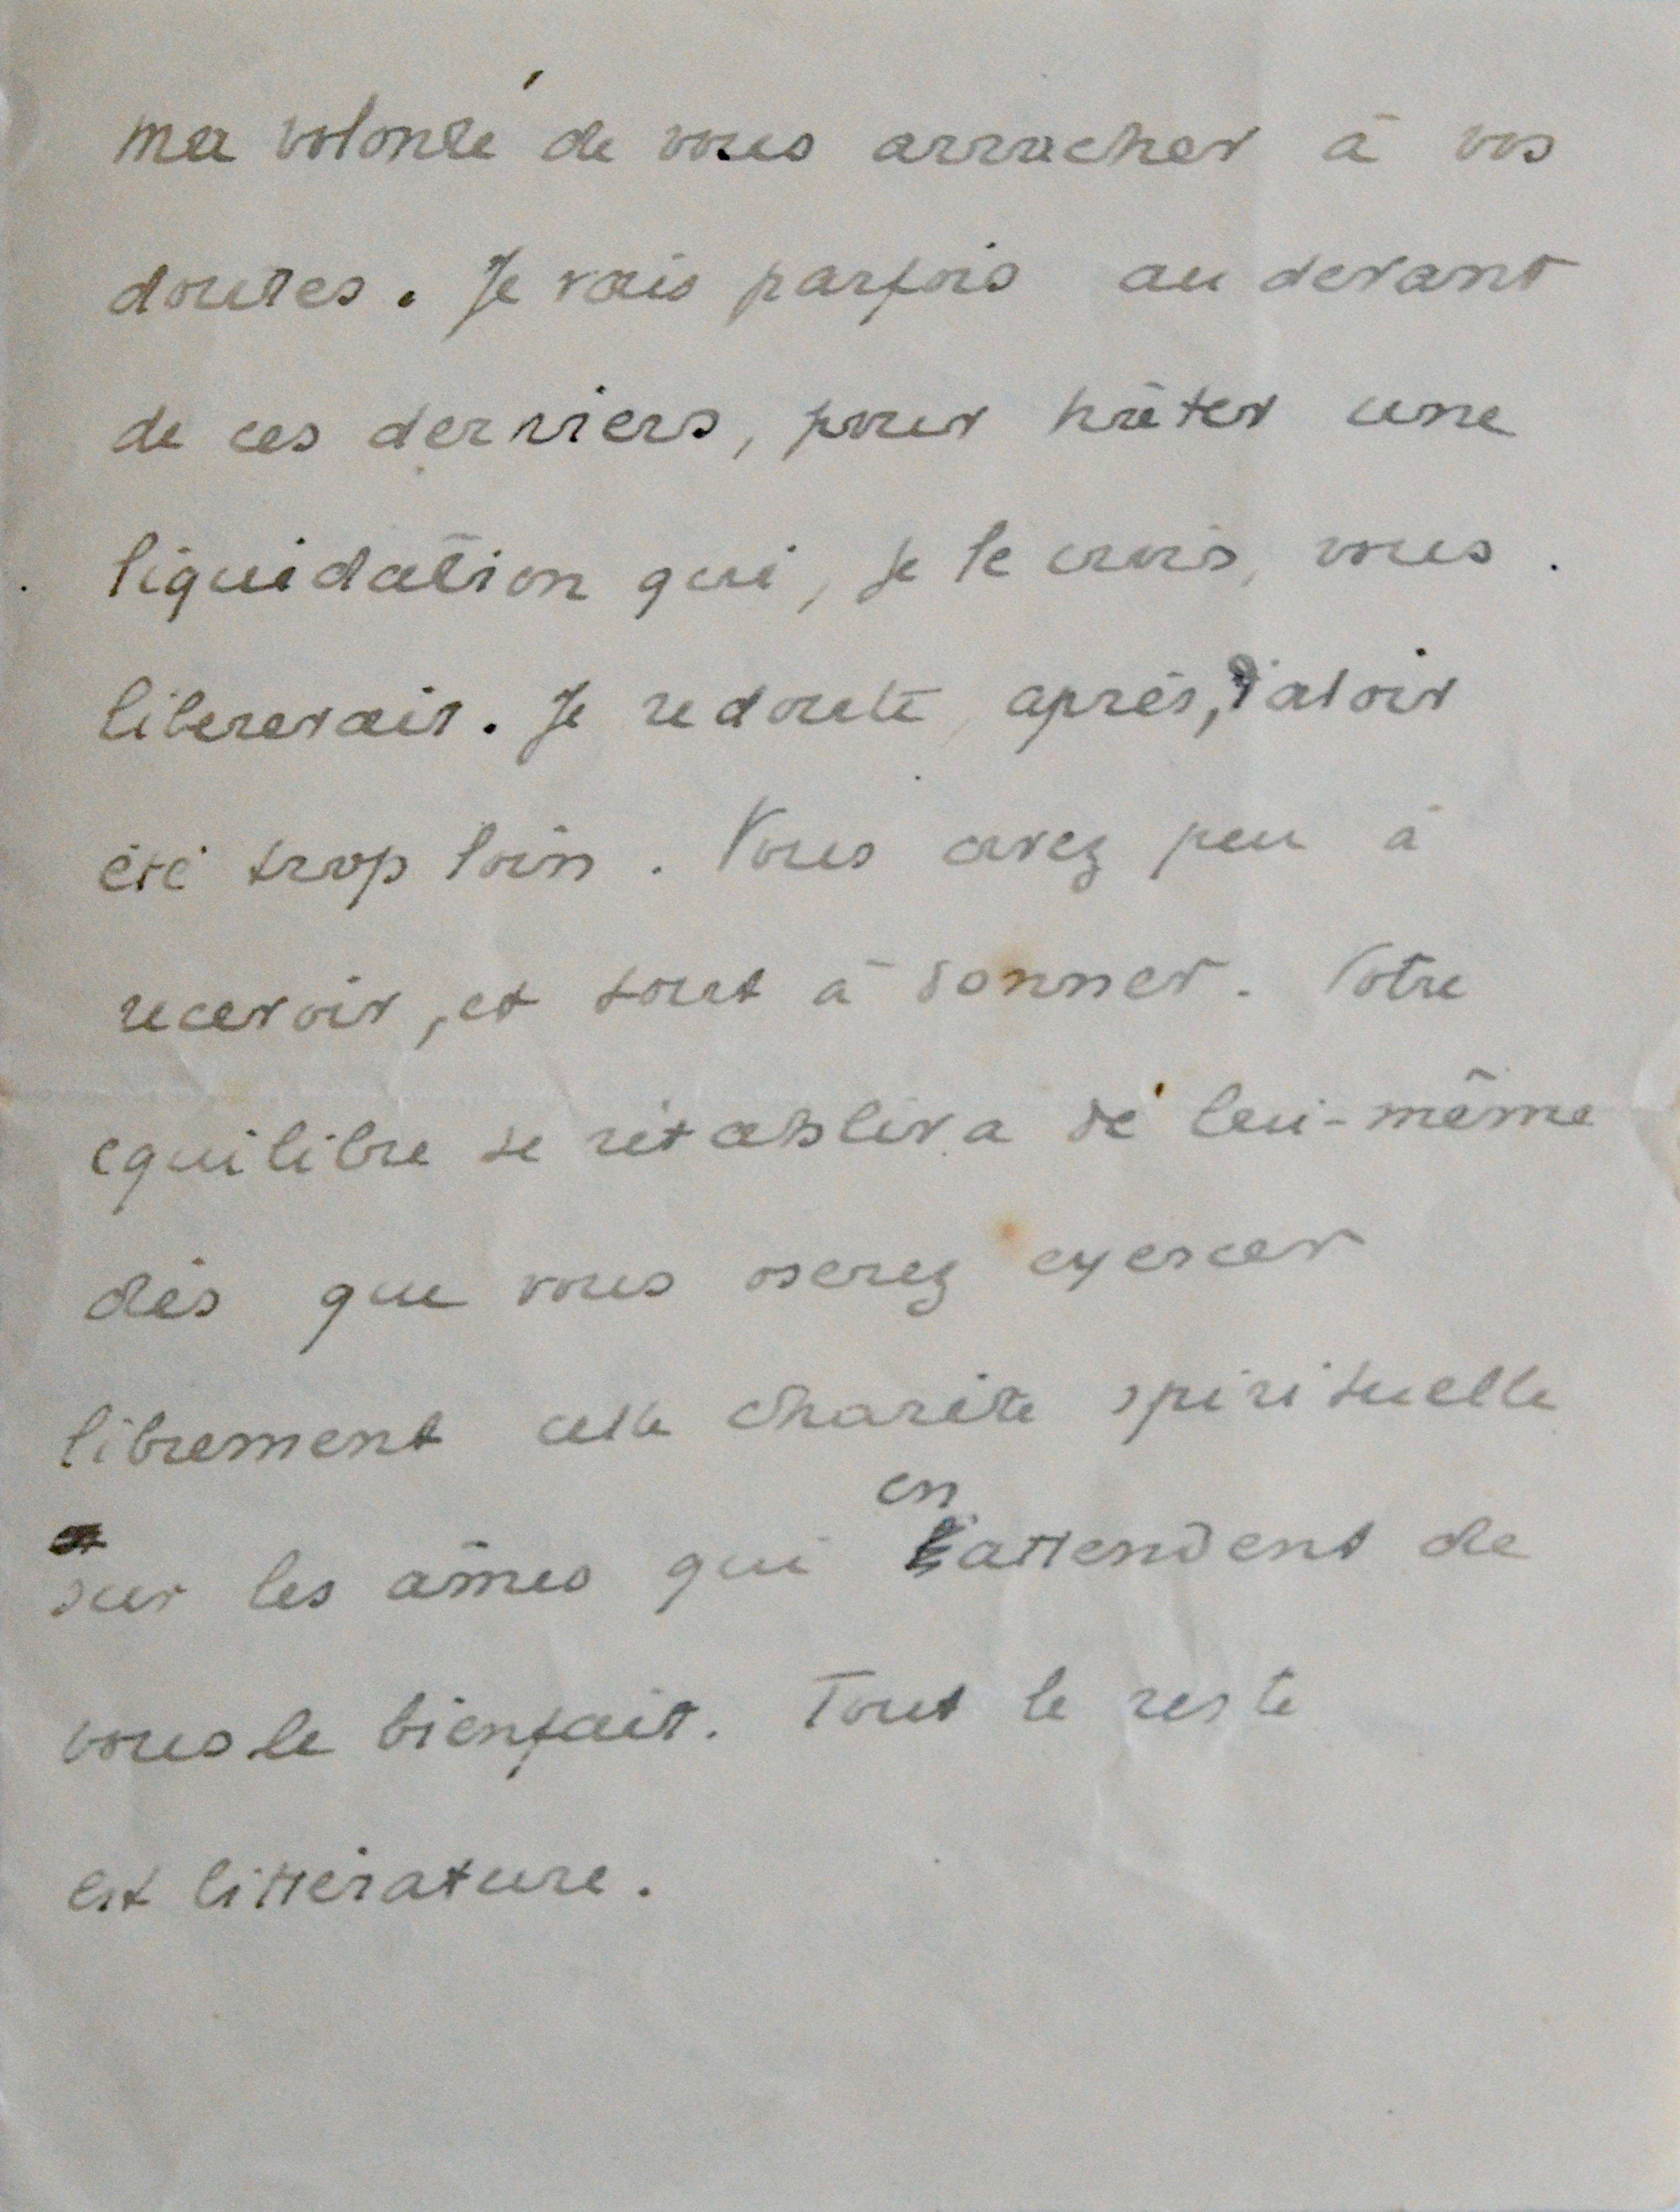 ma volonté de vous arracher à vos
doutes. Je vais parfois au devant
de ces derniers, pour hâter une
liquidation qui, je le crois, vous
libererait. Je redoute, après, d'avoir
été trop loin. Vous avez peu à
recevoir, et tout à donner. Votre
equilibre se rétablira de lui-même
dès que vous oserez exercer
librement cette charité spirituelle
en
sur les âmes qui attendent de
vous le bienfait. Tout le reste
est littérature.